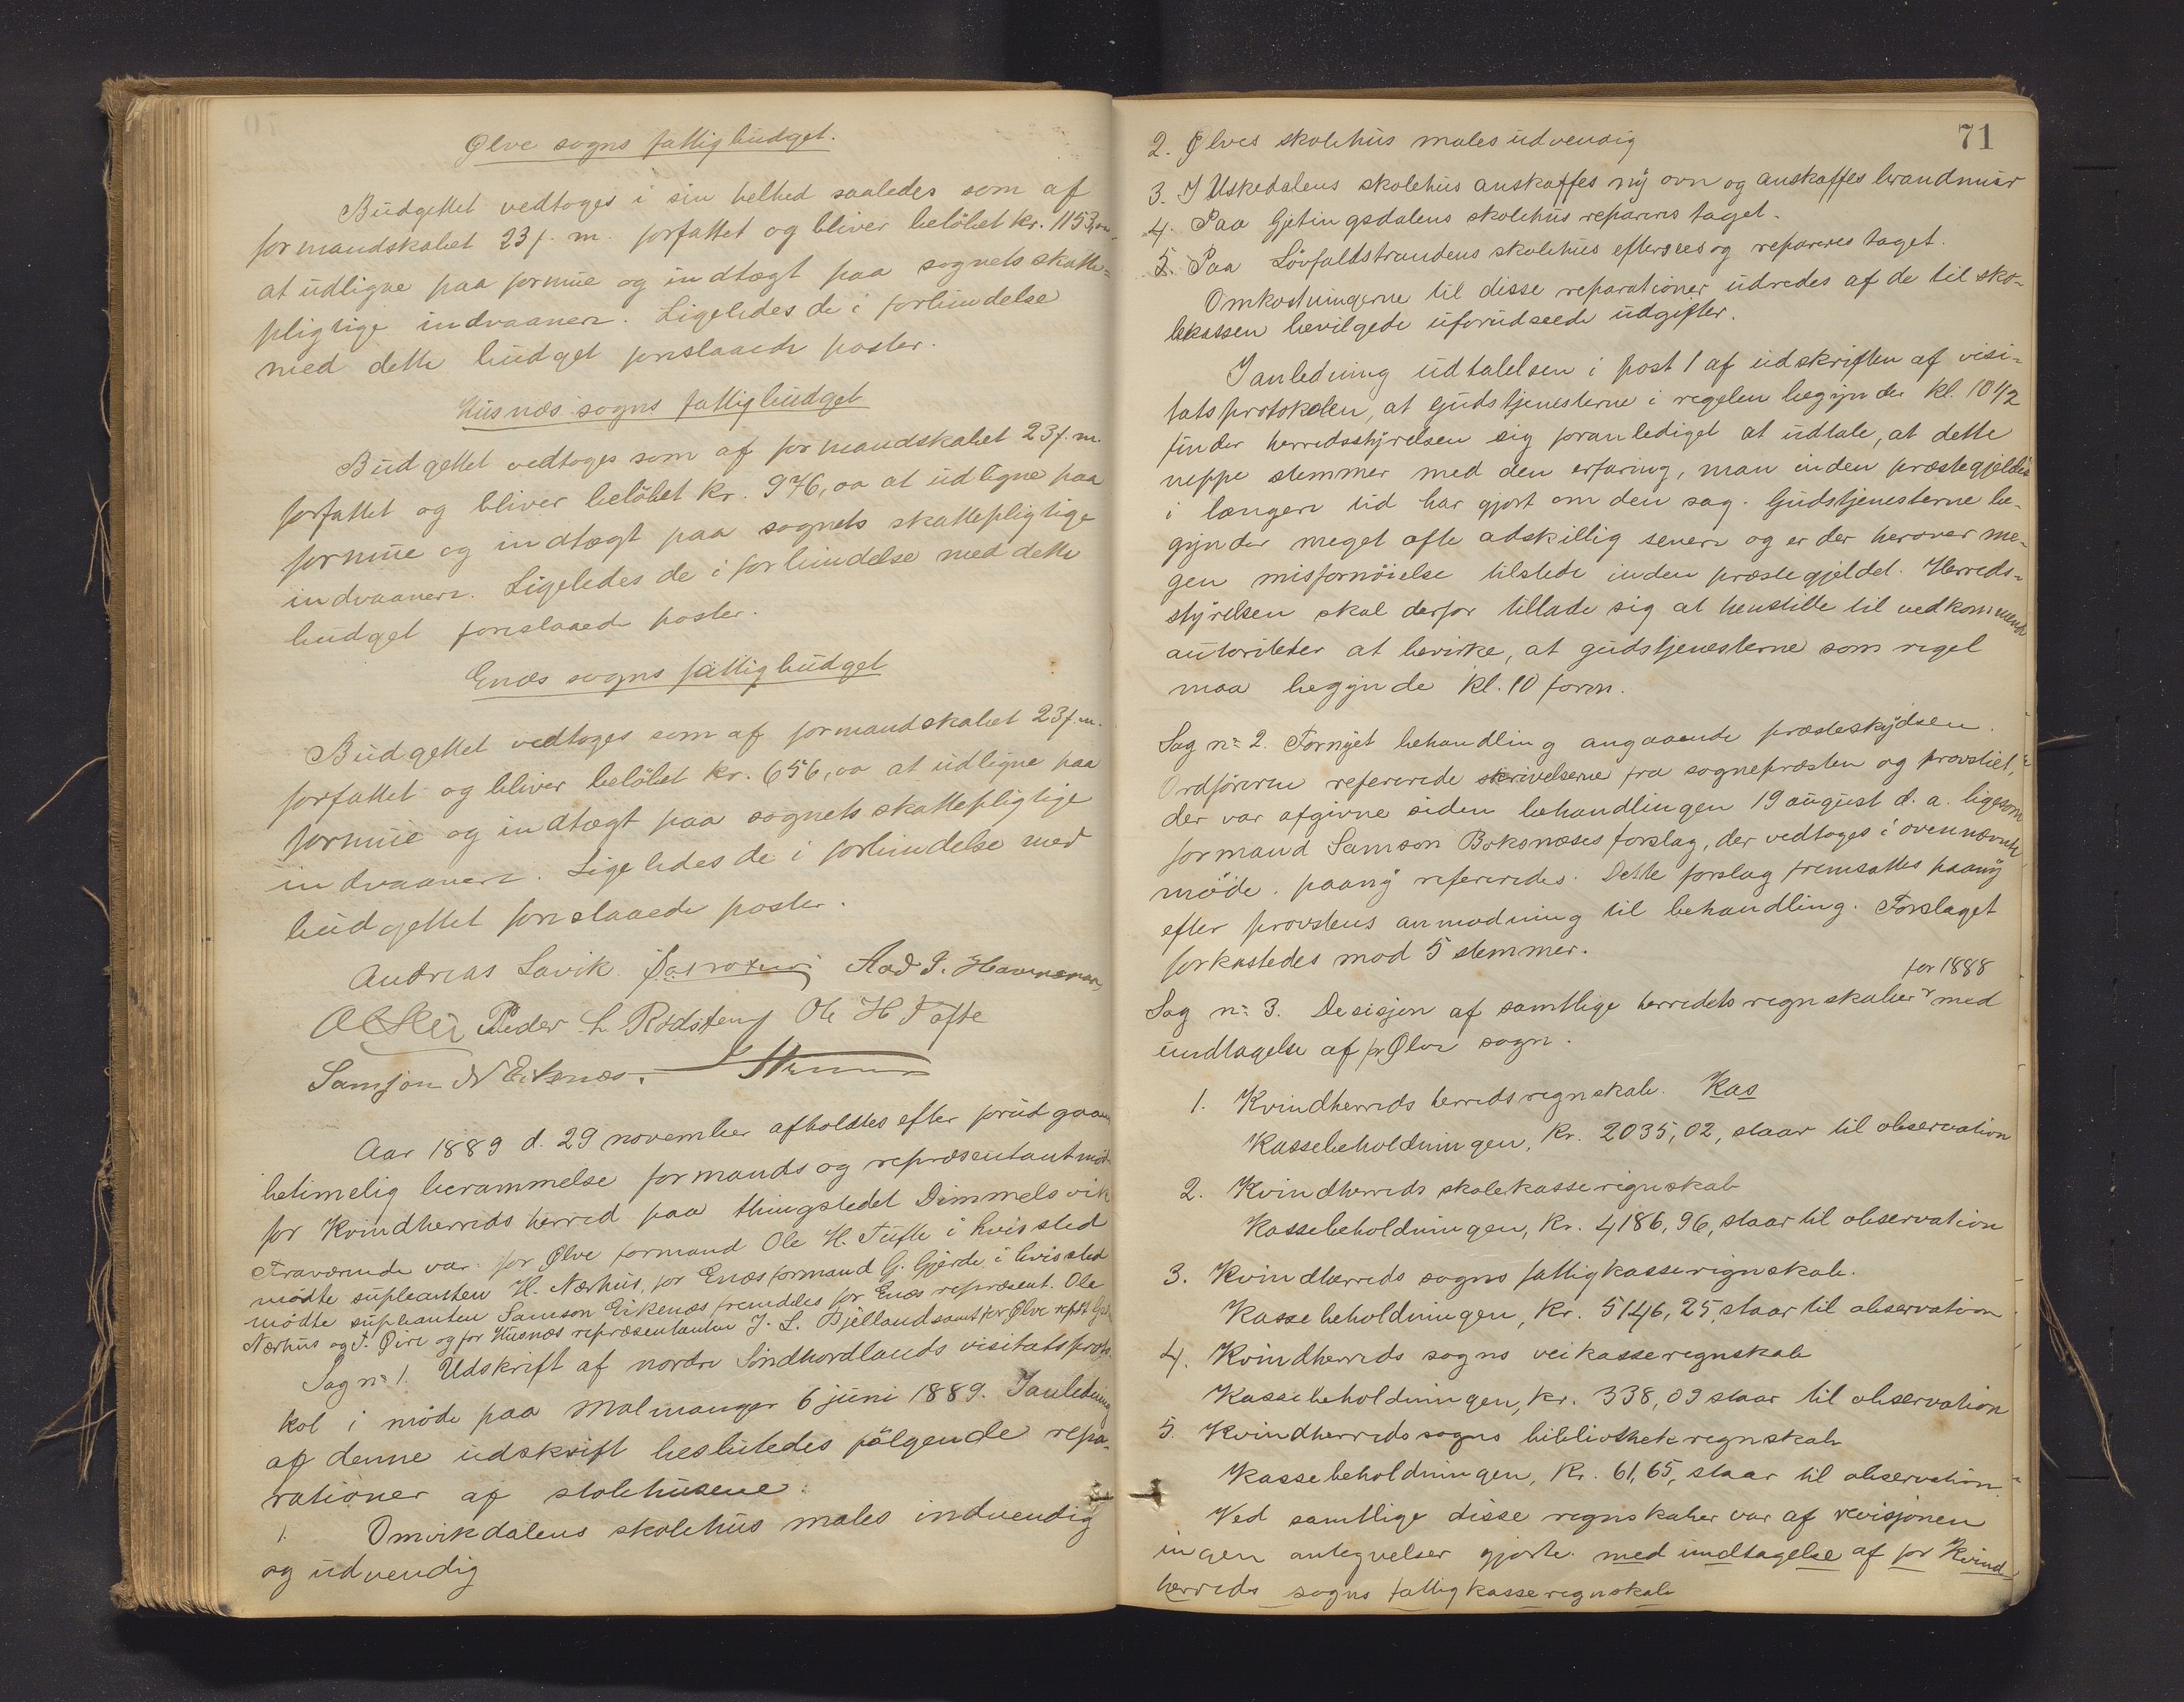 Ølve sogns fattigbudget.
Budgettet vedtoges i sin helhed saaledes som af
formandskabet 23 f. m. forfattet og bliver beløbet kr. 1153,oo
at udligne paa formue og indtægt paa sognets skatte-
pligtige indvaanere. Ligeledes de i forbindelse
med dette budget foreslaaede poster.
Husnæs sogns fattigbudget
Budgettet vedtoges som af formandskabet 23 f. m.
forfattet og bliver beløbet kr. 976,oo at udligne paa
formue og indtægt paa sognets skattepligtige
indvaanere. Ligeledes de i forbindelse med dette
budget foreslaaede poster.
Enæs sogns fattigbudget
Budgettet vedtoges som af formandskabet 23 f. m.
forfattet og bliver beløbet kr. 656,oo at udligne paa
formue og indtægt paa sognets skattepligtige
indvaanere. Ligeledes de i forbindelse med
budgettet foreslaaede poster.
Andreas Lavik Aad J. Havneman
Peder L Rødsten Ole H Tofte
Samson N Eikenæs.
Aar 1889 d. 29 november afholdtes efter forudgaaen
betimelig berammelse formands og repræsentantmøde
for Kvindherreds herred paa thingstedet Dimmelsvik
Fraværende var: for Ølve formand Ole H. Tufte i hvis sted
mødte supleanten H. Nærhus, for Enæs formand G. Gjerde i hvis sted
mødte supleanten Samson Eikenæs fremdeles for Enæs repræsent. Ole
Nærhus og T. Øire og for Husnæs repræsentanten J. L. Bjelland samt for Ølve repr.
Sag nr 1. Udskrift af nordre Søndhordlands visitatsproto-
kol i møde paa Malmanger 6 juni 1889. I anledning
af denne udskrift beslutedes følgende repa-
rationer af skolehusene:
1. Omvikdalens skolehus males indvendig
og udvendig
71
2. Ølves skolehus males udvendig
3. I Uskedalens skolehus anskaffes ny ovn og anskaffes brandmur
4. Paa Gjetingsdalens skolehus repareres taget.
5. Paa Løvfaldstrandens skolehus eftersees og repareres taget.
Omkostningerne til disse reparationer udredes af de til sko-
lekassen bevilgede uforudseede udgifter.
I anledning udtalelsen i post 1 af udskriften af visi-
tatsprotokolen, at gudstjenesterne i regelen begynder kl. 10 1/2
finder herredsstyrelsen sig foranlediget at udtale, at dette
neppe stemmer med den erfaring, man inden præstegjeldet
i længere tid har gjort om den sag. Gudstjenesterne be-
gynder meget ofte adskillig senere og er der herover me-
gen misfornøielse tilstede inden præstegjeldet. Herreds-
styrelsen skal derfor tillade sig at henstille til vedkommende
autoriteter at bevirke, at gudstjenesterne som regel
maa begynde kl. 10 form.
Sag nr 2. Fornyet behandling angaaende præsteskydsen.
Ordføreren refererede skrivelserne fra sognepræsten og provstiet,
der var afgivne siden behandlingen 19 august d. a. ligesom
formand Samson Boksnæses forslag, der vedtoges i ovennævnte
møde. paany refereredes. Dette forslag fremsattes paany
efter provstens anmodning til behandling. Forslaget
forkastedes mod 5 stemmer.
for 1888
Sag nr 3. Desisjon af samtlige herredets regnskaber med
undtagelse af for Ølve sogn.
1. Kvindherreds herredsregnskab. Kas
Kassebeholdningen, kr. 2035,02, staar til observation
2. Kvindherreds skolekasseregnskab
Kassebeholdningen, kr. 4186,96, staar til observation
3. Kvindherreds sogns fattigkasseregnskab.
Kassebeholdningen, kr. 5146,25, staar til observation
4. Kvindherreds sogns veikasseregnskab
Kassebeholdningen, kr. 338,09 staar til observation
5. Kvindherreds sogns bibliothekregnskab
Kassebeholdningen, kr. 61,65, staar til observation.
Ved samtlige disse regnskaber var af revisjonen
ingen antegnelser gjorte med undtagelse af for Kvind-
herreds sogns fattigkasseregnskab